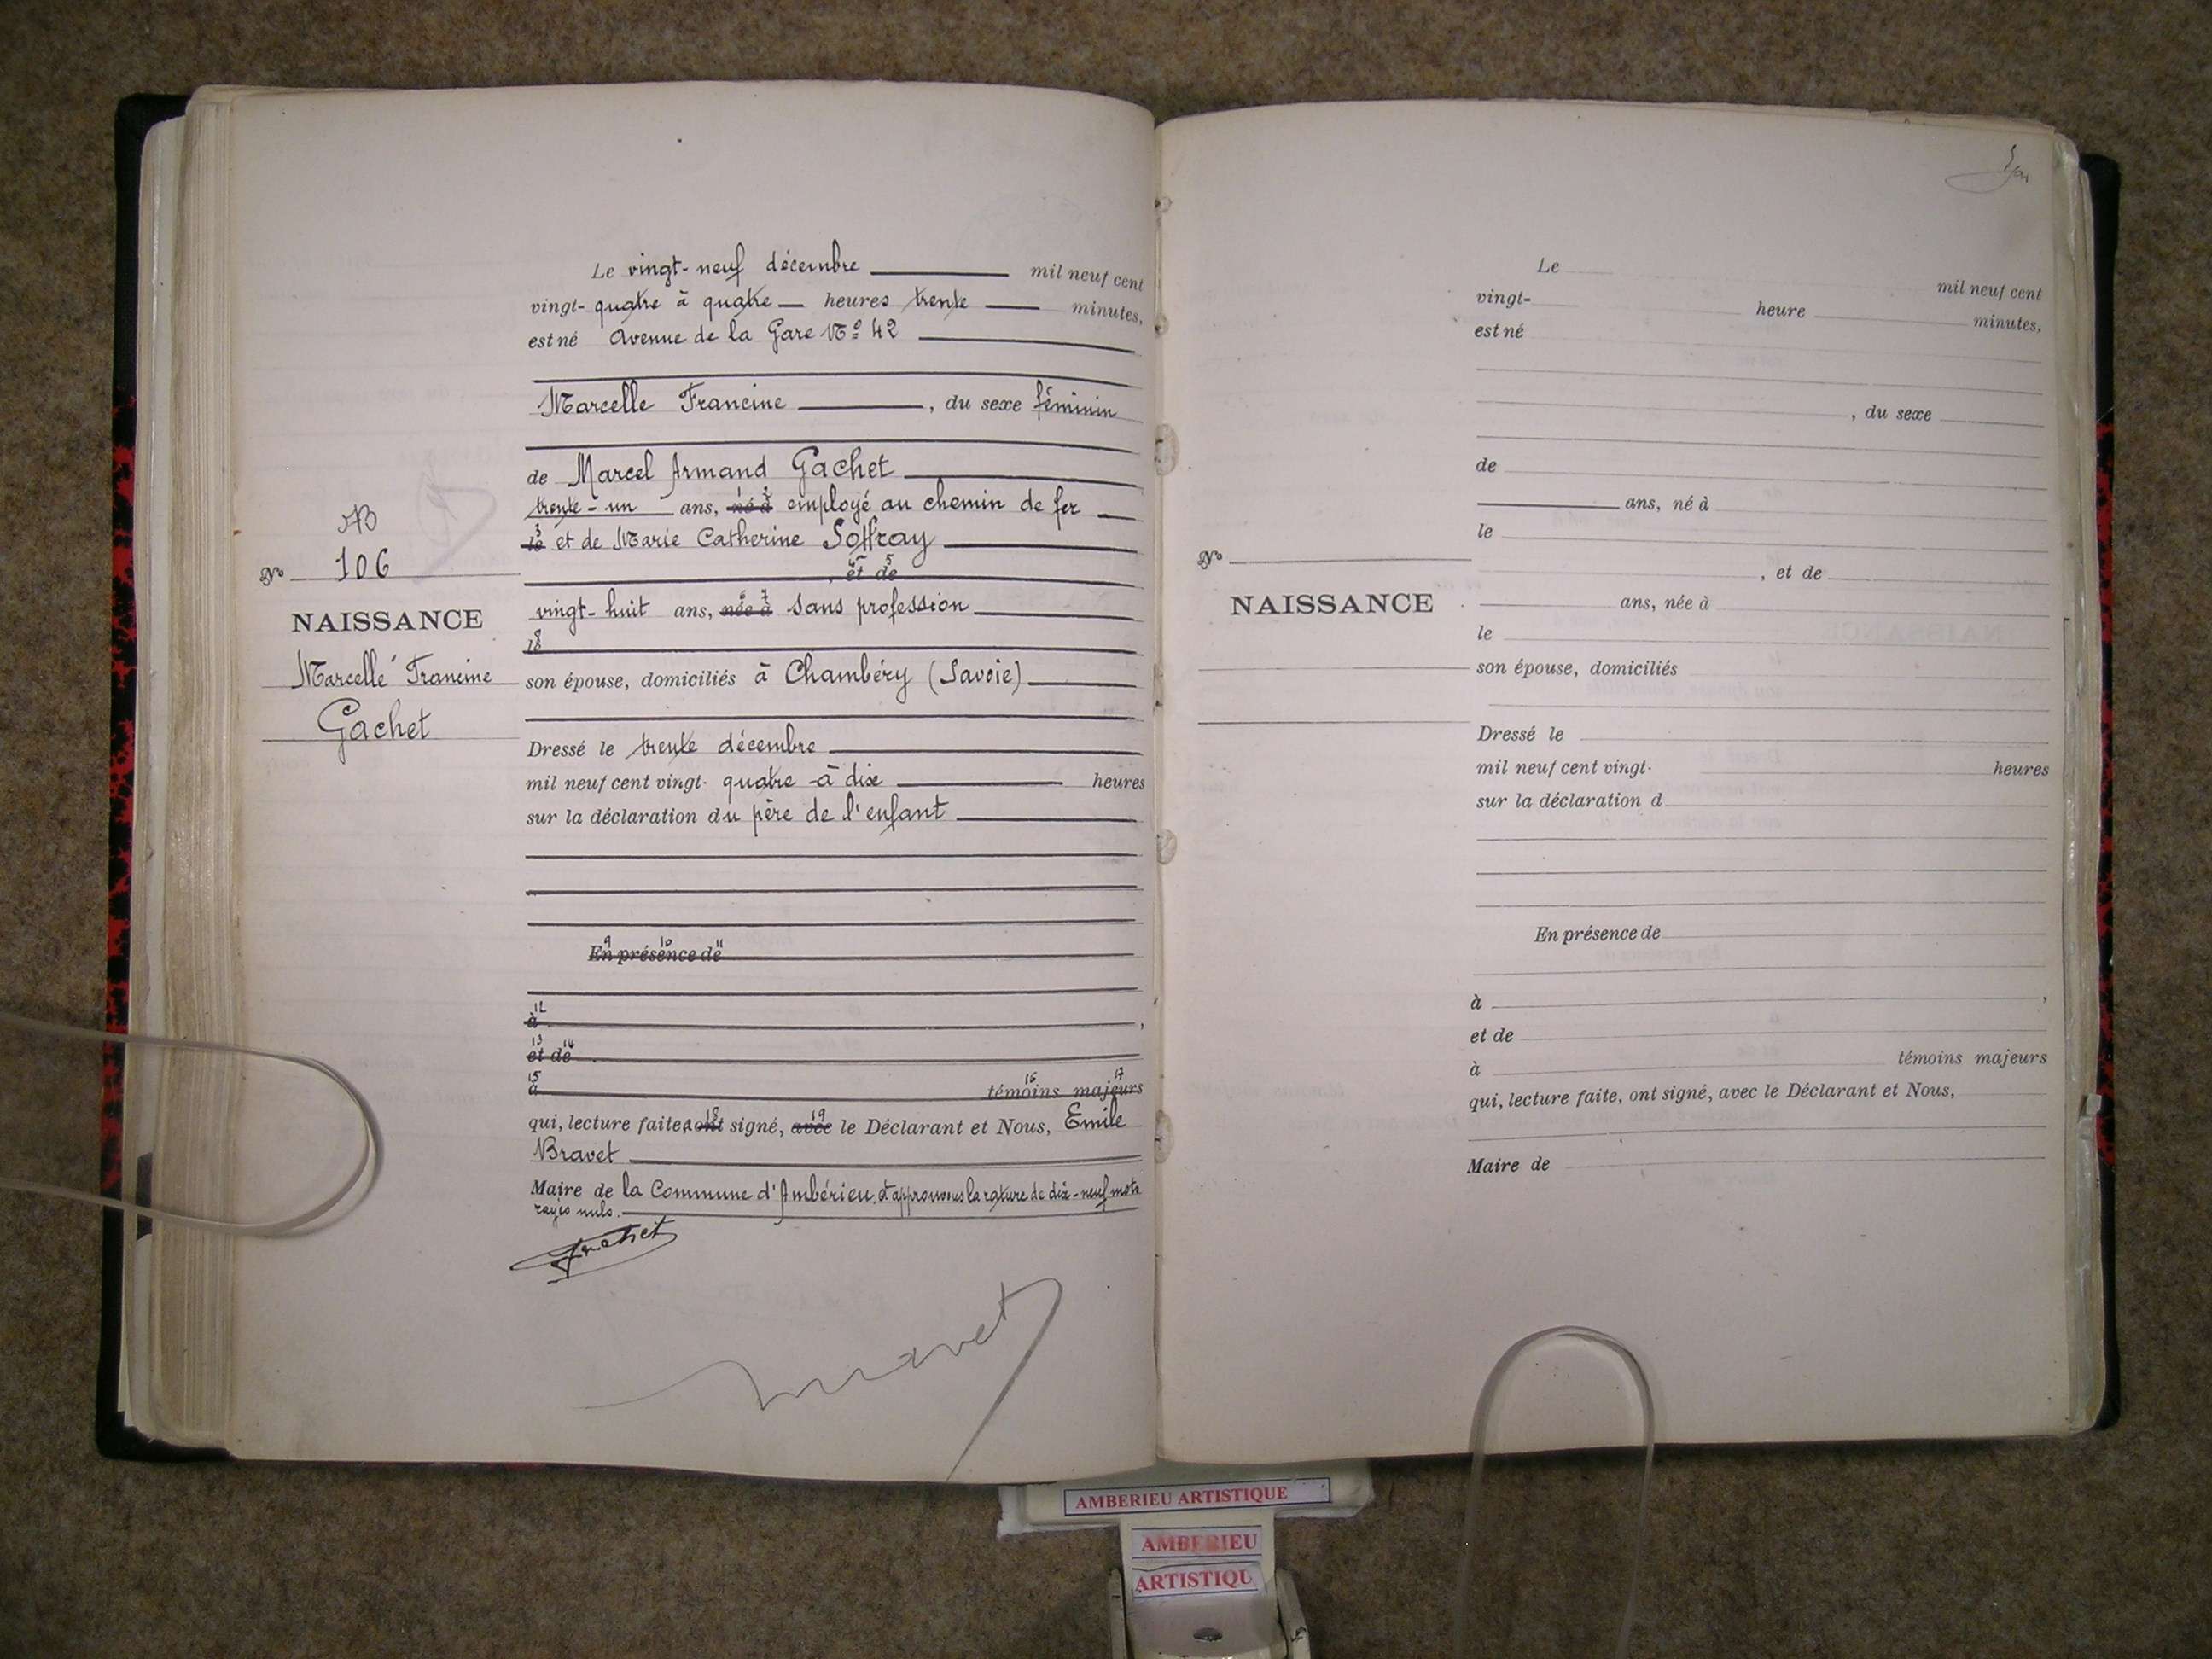 AB
No 106
NAISSANCE
Marcelle Francine
Gachet
Le vingt-neuf décembre mil neuf cent
vingt-quatre à quatre heures trente minutes,
est né Avenue de la Gare No 42
Marcelle Francine , du sexe féminin
de Marcel Armand Gachet
trente-un ans, né à employé au chemin de fer
le et de Marie Catherine Soffray
, et de
vingt-huit ans, née à sans profession
le
son épouse, domiciliés à Chambéry (Savoie)
Dressé le trente décembre
mil neuf cent vingt-quatre à dix heures
sur la déclaration du père de l'enfant
En présence de
à ,
et de
à témoins majeurs
qui, lecture faite, ont signé, avec le Déclarant et Nous, Emile
Bravet
Maire de la Commune d'Ambérieu, et approuvons la rature de dix-neuf mots
rayés nuls.
Gachet
Bravet
No
NAISSANCE
Le mil neuf cent
vingt- heure minutes,
est né
, du sexe
de
ans, né à
le
, et de
ans, née à
le
son épouse, domiciliés
Dressé le
mil neuf cent vingt- heures
sur la déclaration d
En présence de
à ,
et de
à témoins majeurs
qui, lecture faite, ont signé, avec le Déclarant et Nous,
Maire de
AMBERIEU ARTISTIQUE
AMBERIEU
ARTISTIQU